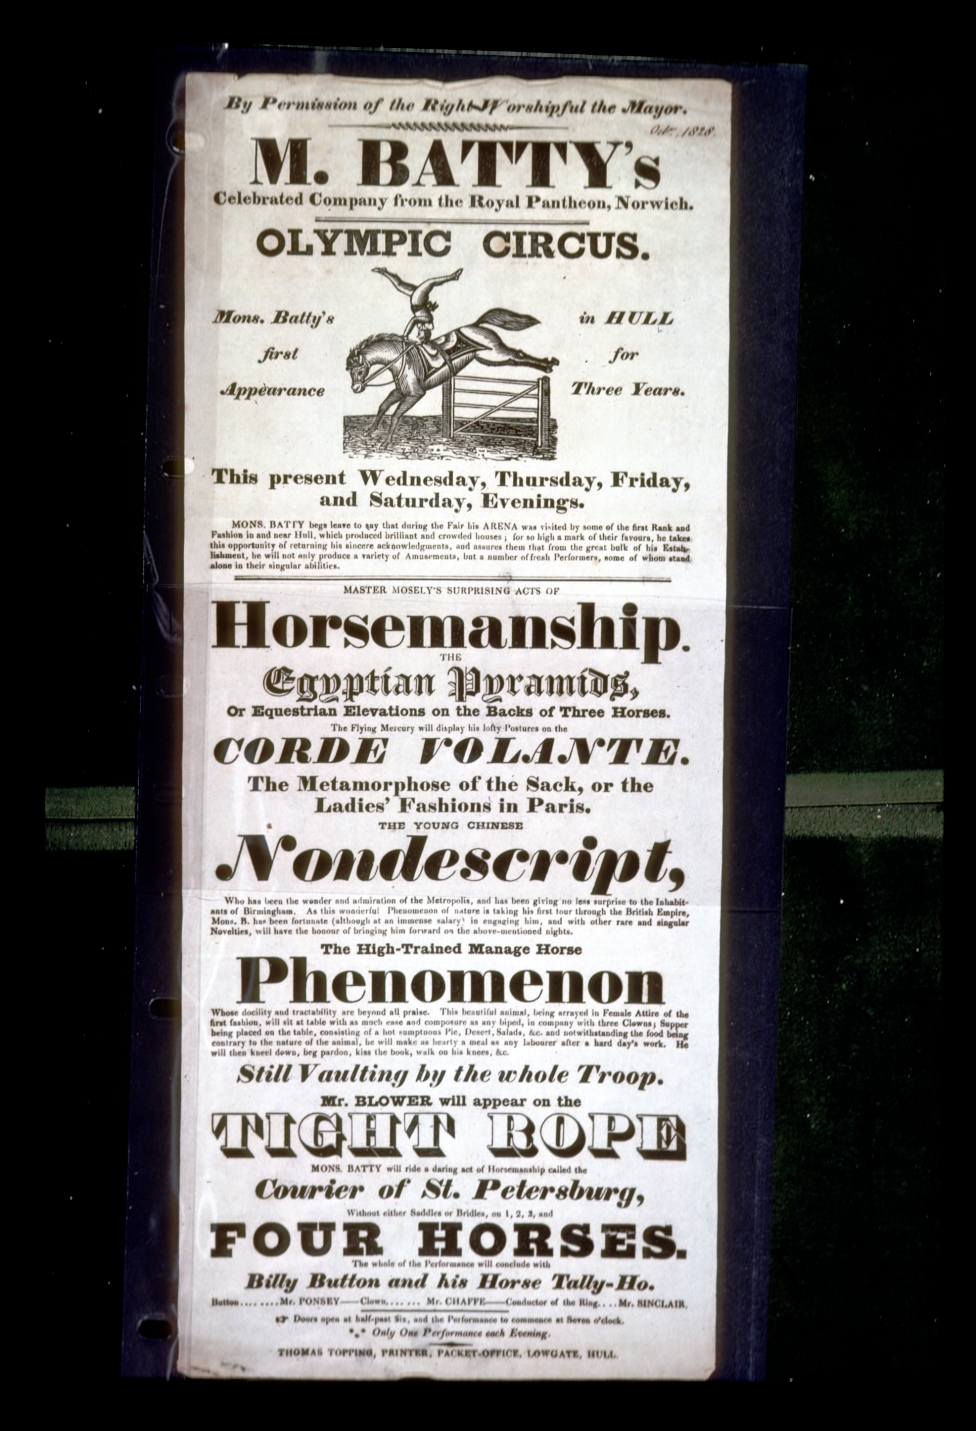 By Permission of the Right Worshipful the Mayor.
Octr. 1828.
M. BATTY's
Celebrated Company from the Royal Pantheon, Norwich.
OLYMPIC CIRCUS.
Mons. Batty's
first
Appearance
in HULL
for
Three Years.
This present Wednesday, Thursday, Friday,
and Saturday, Evenings.
MONS. BATTY begs leave to say that during the Fair his ARENA was visited by some of the first Rank and
Fashion in and near Hull, which produced brilliant and crowded houses; for so high a mark of their favours, he takes
this opportunity of returning his sincere acknowledgments, and assures them that from the great bulk of his Estab-
lishment, he will not only produce a variety of Amusements, but a number of fresh Performers, some of whom stand
alone in their singular abilities.
MASTER MOSELY'S SURPRISING ACTS OF
Horsemanship.
THE
Egyptian Pyramids,
Or Equestrian Elevations on the Backs of Three Horses.
The Flying Mercury will display his lofty Postures on the
CORDE VOLANTE.
The Metamorphose of the Sack, or the
Ladies' Fashions in Paris.
THE YOUNG CHINESE
Nondescript,
Who has been the wonder and admiration of the Metropolis, and has been giving no less surprise to the Inhabit-
ants of Birmingham. As this wonderful Phenomenon of nature is taking his first tour through the British Empire,
Mons. B. has been fortunate (although at an immense salary) in engaging him, and with other rare and singular
Novelties, will have the honour of bringing him forward on the above-mentioned nights.
The High-Trained Manage Horse
Phenomenon
Whose docility and tractability are beyond all praise. This beautiful animal, being arrayed in Female Attire of the
first fashion, will sit at table with as much ease and composure as any biped, in company with three Clowns; Supper
being placed on the table, consisting of a hot sumptuous Pie, Desert, Salads, &c. and notwithstanding the food being
contrary to the nature of the animal, he will make as hearty a meal as any labourer after a hard day's work. He
will then kneel down, beg pardon, kiss the book, walk on his knees, &c.
Still Vaulting by the whole Troop.
Mr. BLOWER will appear on the
TIGHT ROPE
MONS. BATTY will ride a daring act of Horsemanship called the
Courier of St. Petersburg,
Without either Saddles or Bridles, on 1, 2, 3, and
FOUR HORSES.
The whole of the Performance will conclude with
Billy Button and his Horse Tally-Ho.
Button.........Mr. PONSEY——Clown....... Mr. CHAFFE——Conductor of the Ring....Mr. SINCLAIR.
☞ Doors open at half-past Six, and the Performance to commence at Seven o'clock.
*** Only One Performance each Evening.
THOMAS TOPPING, PRINTER, PACKET-OFFICE, LOWGATE, HULL.